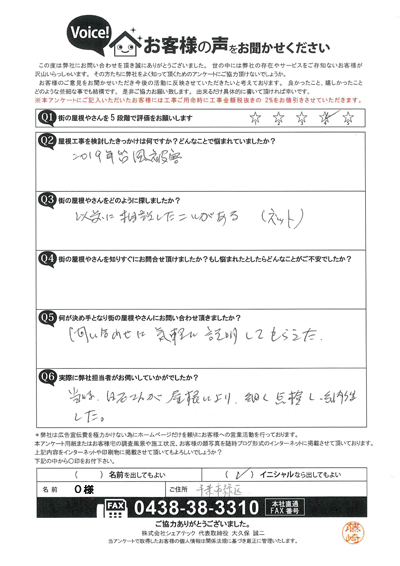 Voice!
お客様の声をお聞かせください
この度は弊社にお問い合わせを頂き誠にありがとうございました。 世の中には弊社の存在やサービスをご存知ないお客様が
沢山いらっしゃいます。 その方たちに弊社をよく知って頂くためのアンケートにご協力頂けないでしょうか。
お客様のご意見をお聞かせいただき今後の活動に反映させていただきたいと考えております。 良かったこと、嬉しかったこと
どのような些細な事でも結構です。 是非ご協力お願い致します。 出来るだけ具体的に書いて頂ければ幸いです。
※本アンケートにご記入いただいたお客様には工事ご用命時に工事金額税抜きの 2%をお値引きさせていただきます。
Q1 街の屋根やさんを 5 段階で評価をお願いします ☆ ☆ ☆ ☆ ☆
Q2 屋根工事を検討したきっかけは何ですか？どんなことで悩まれていましたか？
2019年台風被害
Q3 街の屋根やさんをどのように探しましたか？
以前に相談したことがある (ネット)
Q4 街の屋根やさんを知りすぐにお問合せ頂けましたか？もし悩まれたとしたらどんなことがご不安でしたか？
Q5 何が決め手となり街の屋根やさんにお問い合わせ頂きましたか？
問い合わせに気軽に説明してもらえた
Q6 実際に弊社担当者がお伺いしていかがでしたか？
屋根に 細く点検し
した。
＊弊社は広告宣伝費を極力かけない為にホームページだけを頼りにお客様への営業活動を行っております。
本アンケート用紙またはお客様宅の調査風景や施工状況、お客様の顔写真を随時ブログ形式のインターネットに掲載させて頂いております。
上記内容をインターネットや印刷物に掲載させて頂いてもよろしいでしょうか？
下記の中から〇印をお付下さい。
( ) 名前を出してもよい ( ✓ ) イニシャルなら出してもよい
名 前 O様 ご住所 千葉市緑区
FAX 0438-38-3310 本社直通 FAX 番号
ご協力ありがとうございました。
株式会社シェアテック 代表取締役 大久保 誠二
当アンケートで取得したお客様の個人情報は関係法規に基づき厳正に管理いたします。
藤崎